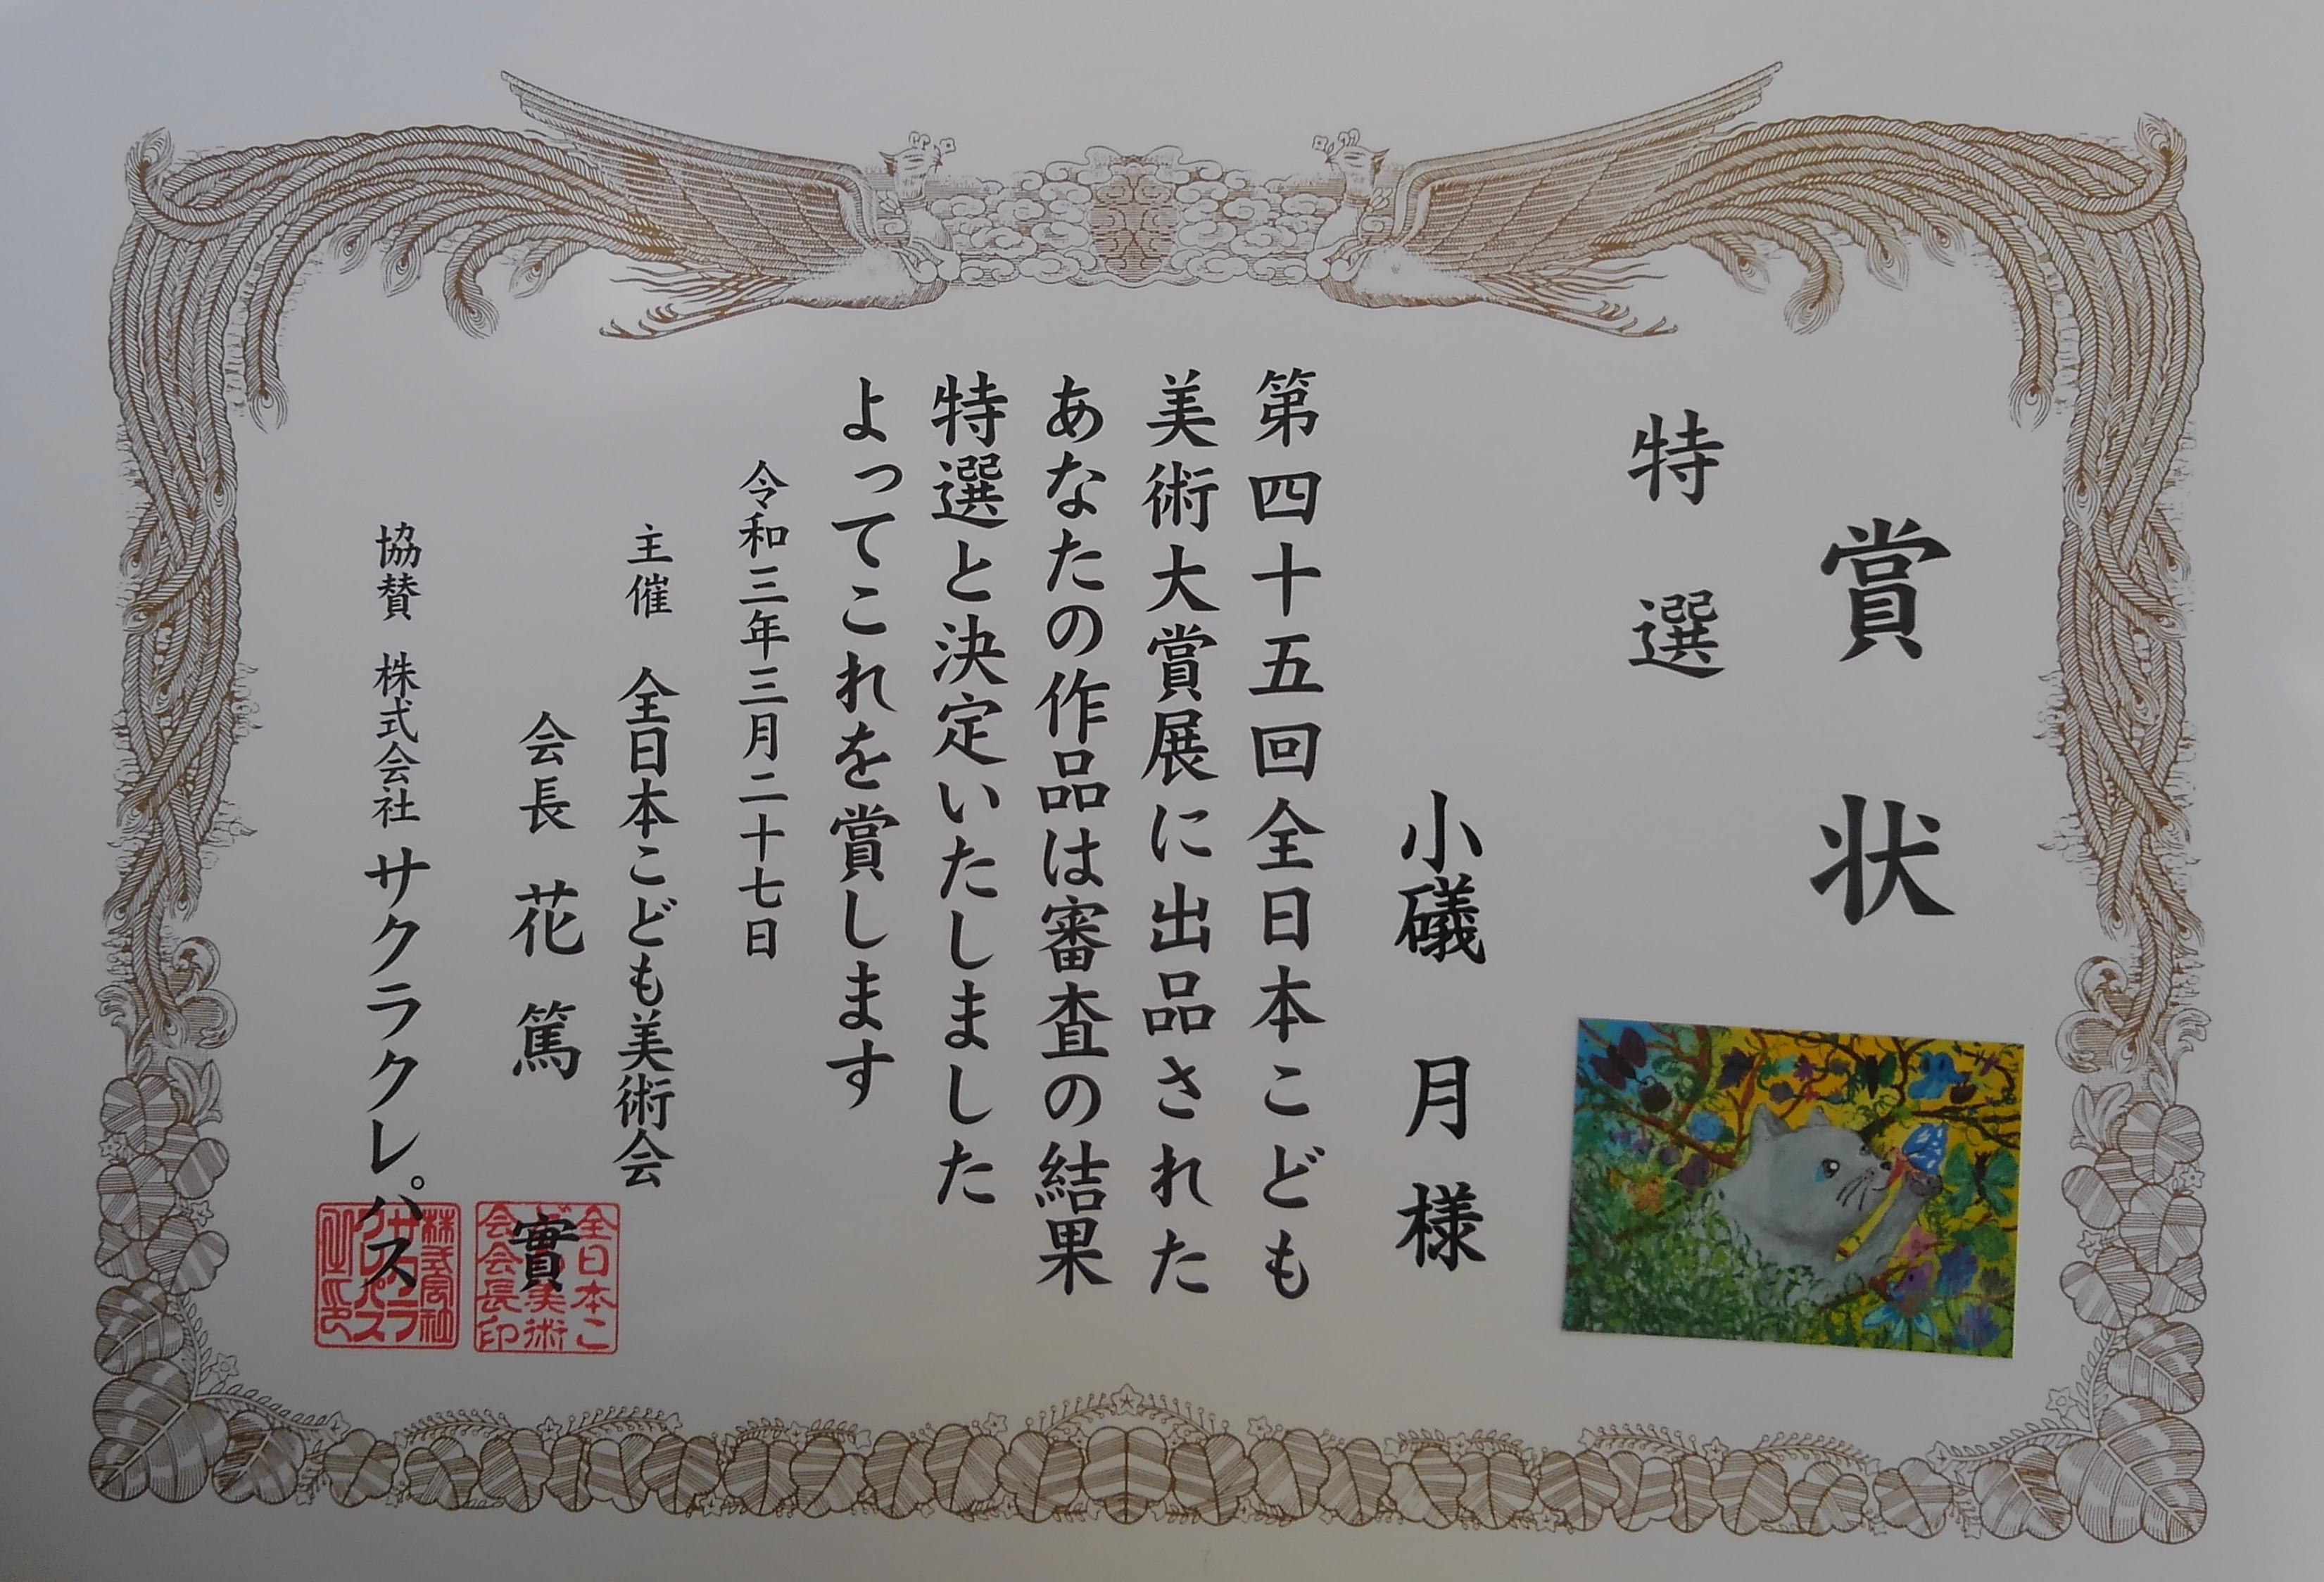 賞状
特選
小礒 月 様
第四十五回全日本こども
美術大賞展に出品された
あなたの作品は審査の結果
特選と決定いたしました
よってこれを賞します
令和三年三月二十七日
主催 全日本こども美術会
会長 花篤 實
協賛 株式会社 サクラクレパス
全日本こども美術会会長印
株式会社サクラクレパス之印